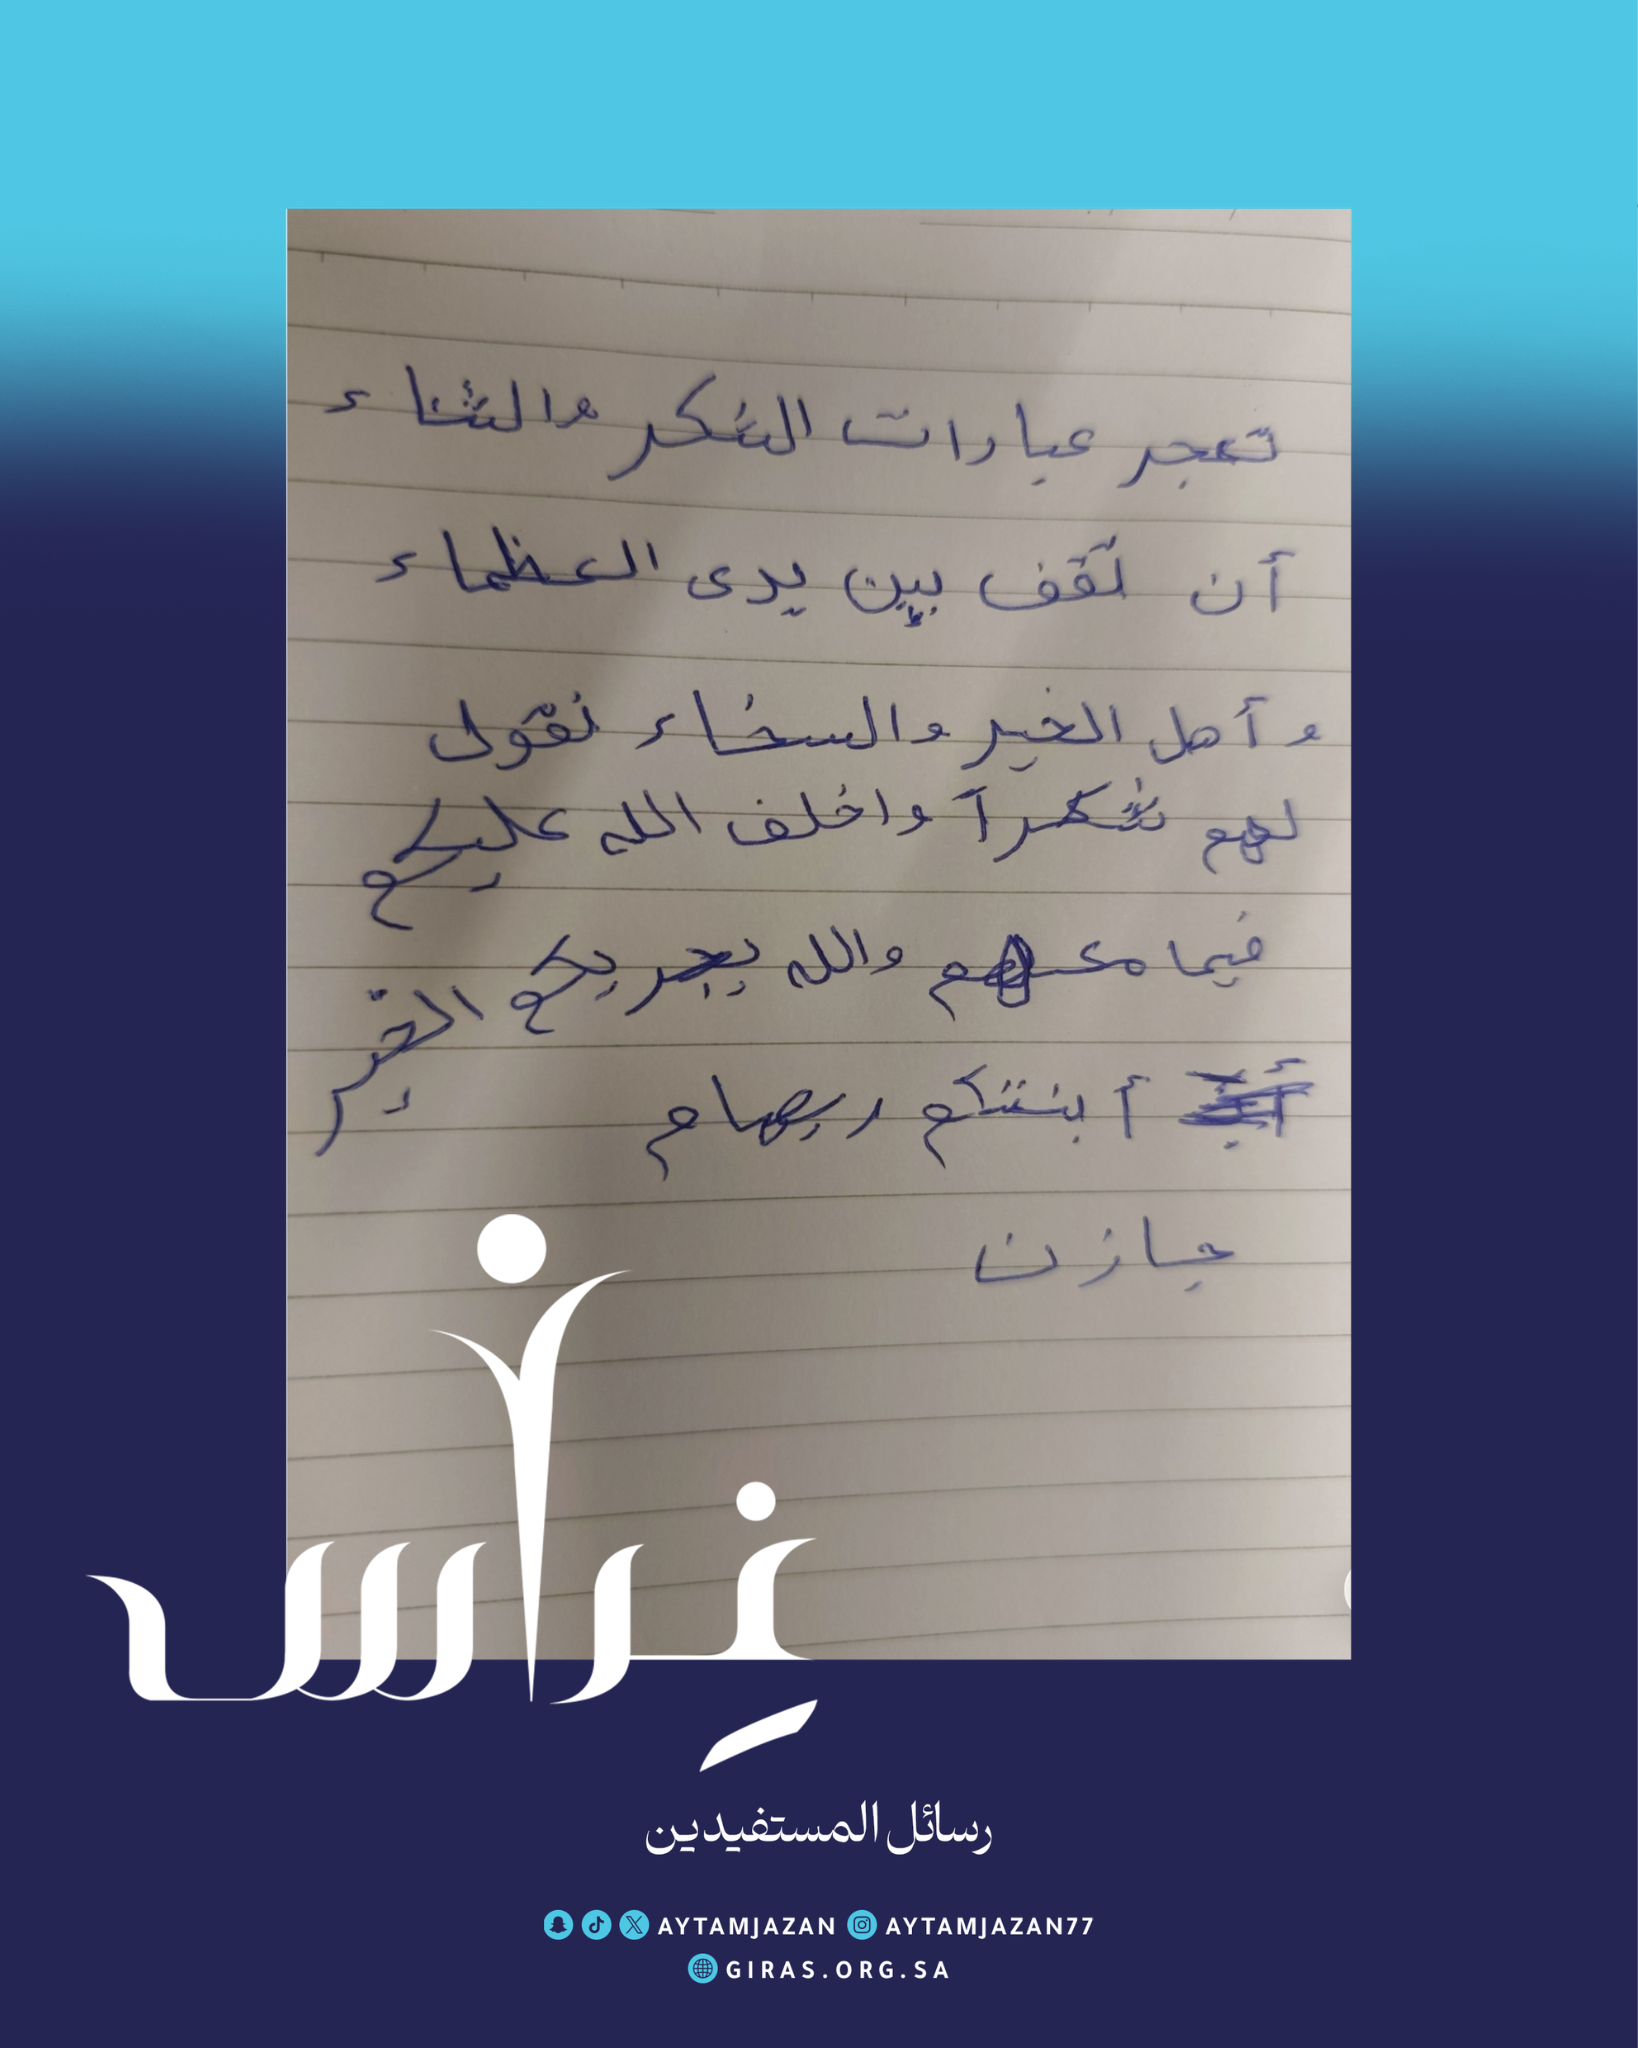 تعجر عبارات الشكر والثناء
أن تقف بين يدى العظماء
و أهل الخير والسخاء نقول
لهم شكراً واخلف الله عليكم
فيما معهم والله يجريكم الخير
أبنتكم ريهام
جازن
غراس
رسائل المستفيدين
AYTAMJAZAN AYTAMJAZAN77
GIRAS.ORG.SA